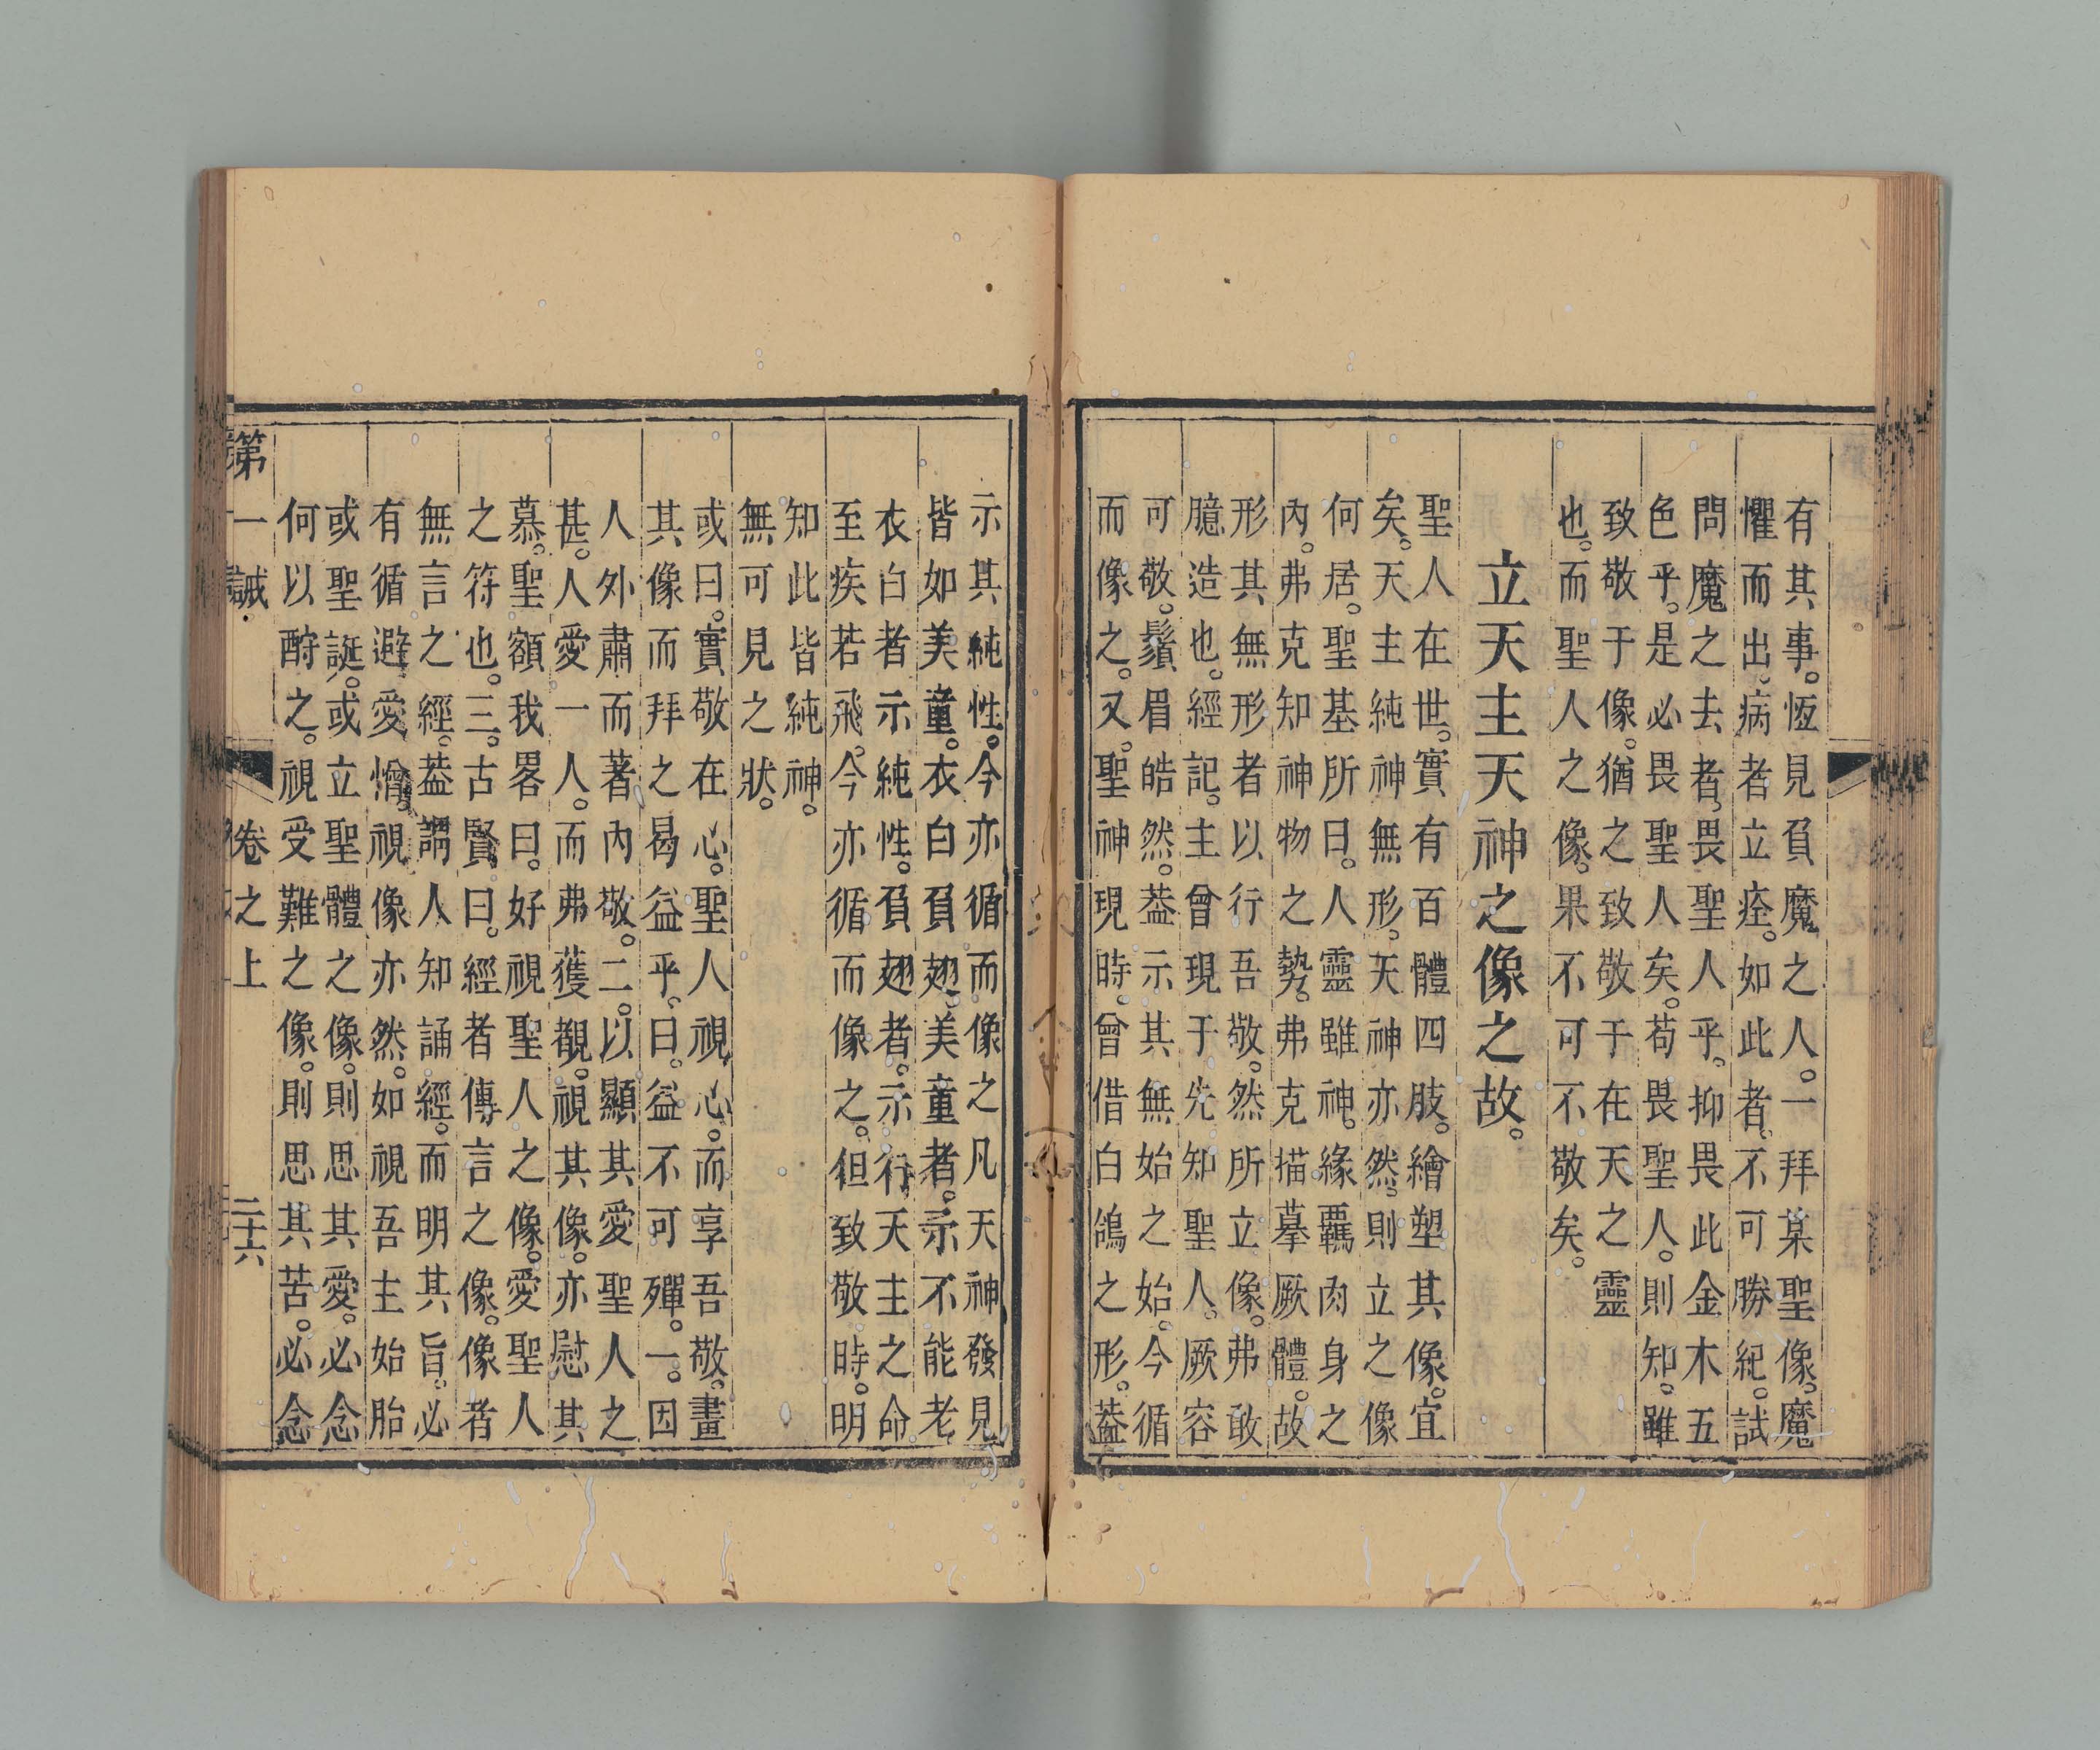 有其事。恆見負魔之人。一拜某聖像。魔
懼而出。病者立痊。如此者。不可勝紀。試
問魔之去者。畏聖人乎。抑畏此金木五
色乎。是必畏聖人矣。苟畏聖人。則知。雖
致敬于像。猶之致敬于在天之靈
也。而聖人之像。果不可不敬矣。
立天主天神之像之故。
聖人在世。實有百體四肢。繪塑其像。宜
矣。天主純神無形。天神亦然。則立之像
何居。聖基所曰。人靈雖神。緣羈肉身之
內。弗克知神物之勢。弗克描摹厥體。故
形其無形者以行吾敬。然所立像。弗敢
臆造也。經記。主曾現于先知聖人。厥容
可敬。鬚眉皓然。葢示其無始之始。今循
而像之。又。聖神現時。曾借白鴿之形。葢
示其純性。今亦循而像之凡天神發見
皆如美童。衣白負翅。美童者。示不能老
衣白者示純性。負翅者。示行天主之命
至疾若飛。今亦循而像之。但致敬時。明
知此皆純神。
無可見之狀。
或曰。實敬在心。聖人視心。而享吾敬。畫
其像而拜之曷益乎。曰。益不可殫。一。因
人外肅而著內敬。二。以顯其愛聖人之
甚。人愛一人。而弗獲覩。視其像。亦慰其
慕。聖額我畧曰。好視聖人之像。愛聖人
之符也。三。古賢曰。經者傳言之像。像者
無言之經。葢謂人知誦經。而明其旨。必
有循避愛憎。視像亦然。如視吾主始胎
或聖誕。或立聖體之像。則思其愛。必念
何以酧之。視受難之像。則思其苦。必念
第一誡 卷之上 二十六